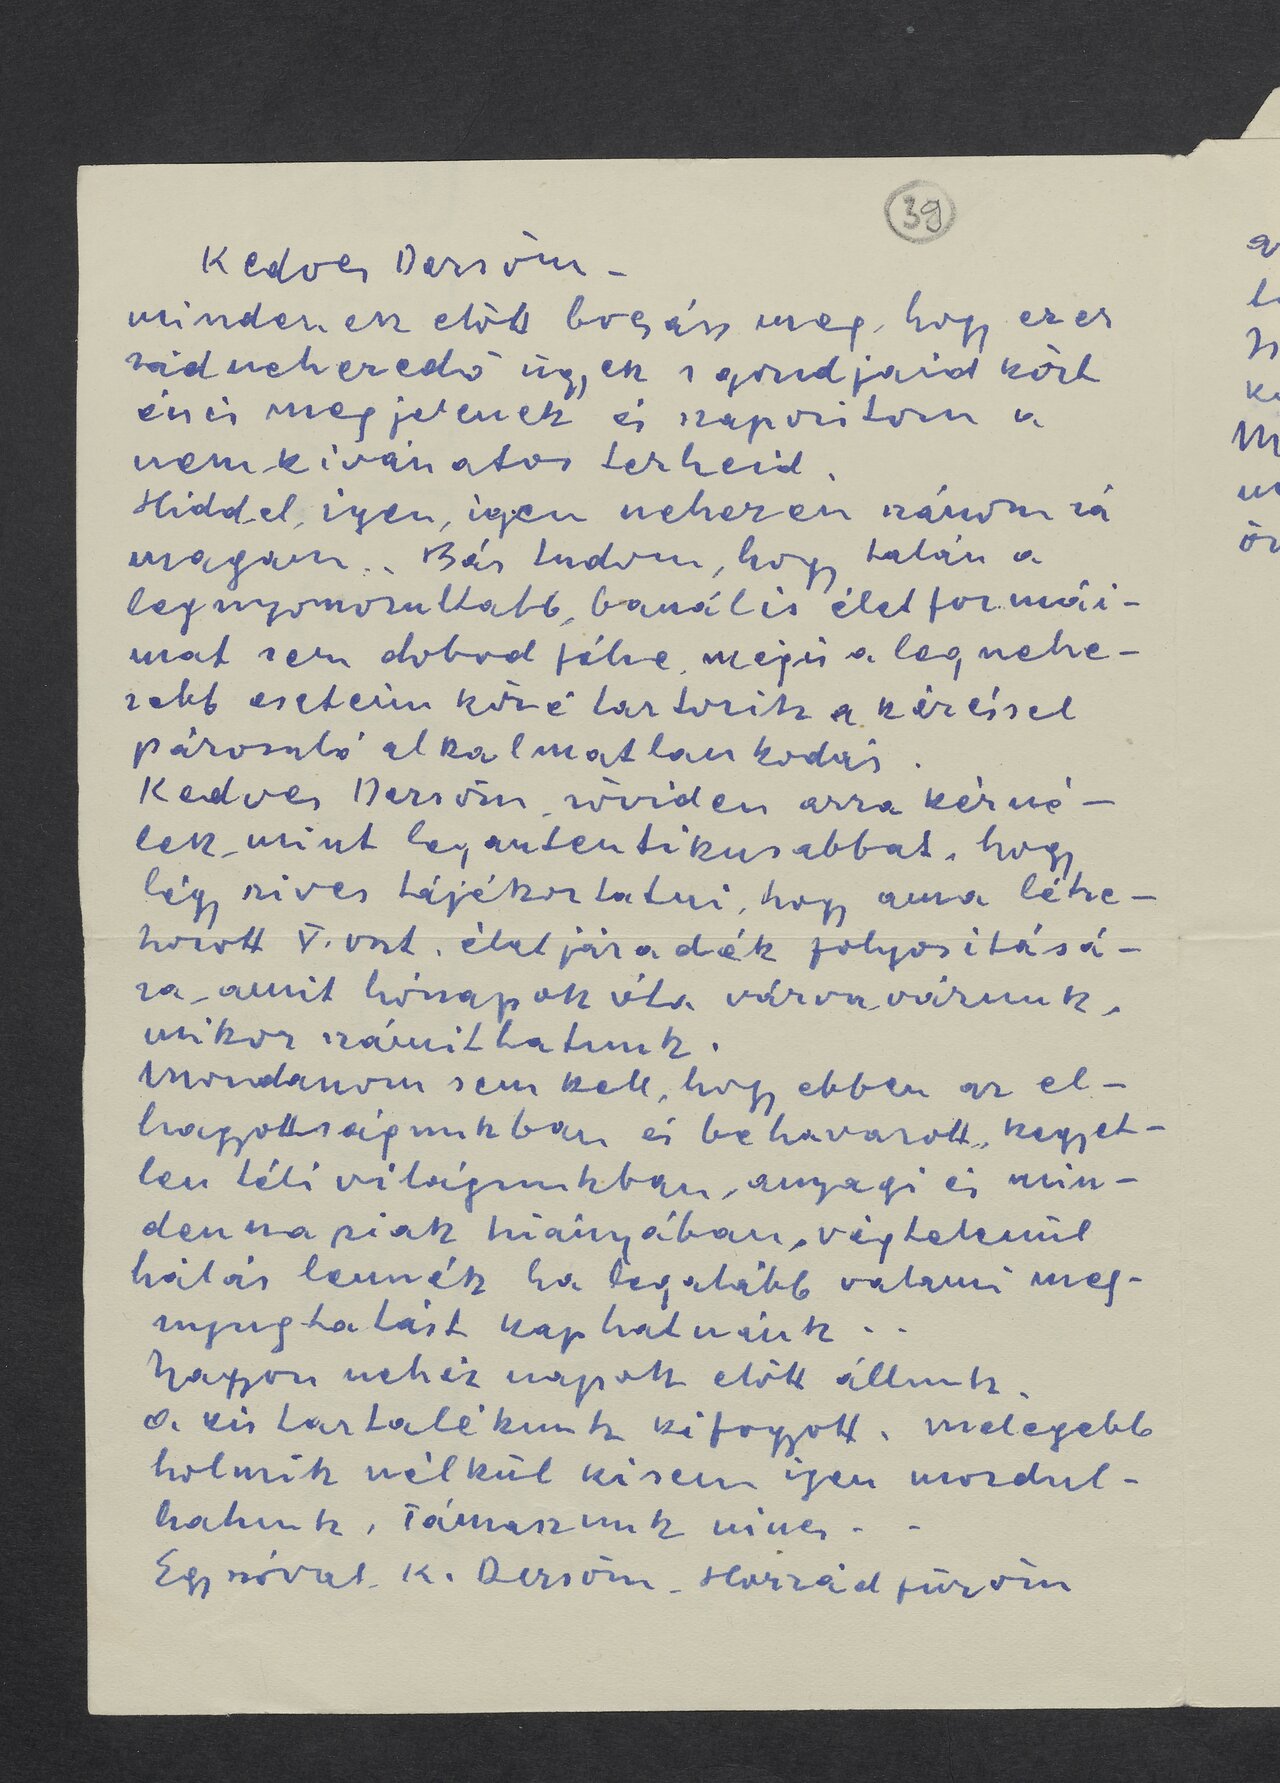 39
Kedves Dersőm –
mindenek előtt bocsáss meg, hogy ezer
rád nehezedő ügyek s gondjaid közt
én is megjelenek és szaporitom a
nemkivánatos terheid.
Hidd el, igen, igen nehezen szánom rá
magam.. Bár tudom, hogy talán a
legnyomorultabb, banális életformái-
mat sem dobod félre, mégis a legnehe-
zebb eseteim közé tartozik a kéréssel
párosuló alkalmatlankodás.
Kedves Dersőm, röviden arra kérné-
lek, mint legautentikusabbat, hogy
légy szives tájékoztatni, hogy ama létre-
hozott V. oszt. életjáradék folyositásá-
ra, amit hónapok óta várva várunk,
mikor számithatunk.
Mondanom sem kell, hogy ebben az el-
hagyottságunkban és behavazott, kegyet-
len téli világunkban, anyagi és min-
dennapiak hiányában, végtelenül
hálás lennék ha legalább valami meg-
nyugtatást kaphatnánk..
Nagyon nehéz napok előtt állunk.
A kis tartalékunk kifogyott, melegebb
holmik nélkül kisem igen mozdul-
hatunk, Támaszunk nincs..
Egyszóval K. Dersőm – Hozzád fűzöm